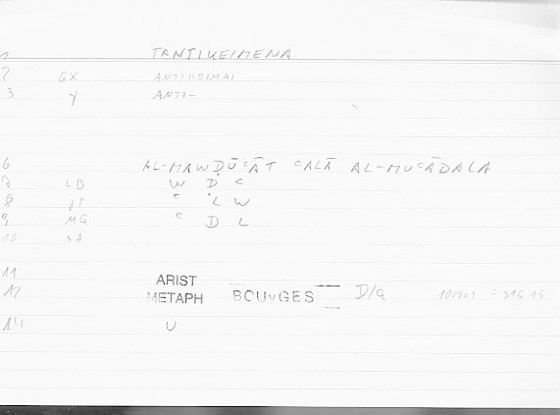 1 TANTIKEIMENA
2 GX ANTIKEIMAI
3 γ ANTI-
6 AL-MAWḌŪʿĀT ʿALĀ AL-MUʿĀDALA
7 LB W Ḍ ʿ
8 ʿ L W
9 MG ʿ D L
10 SA
11 ARIST
12 METAPH BOUYGES D/a 216.15
14 U